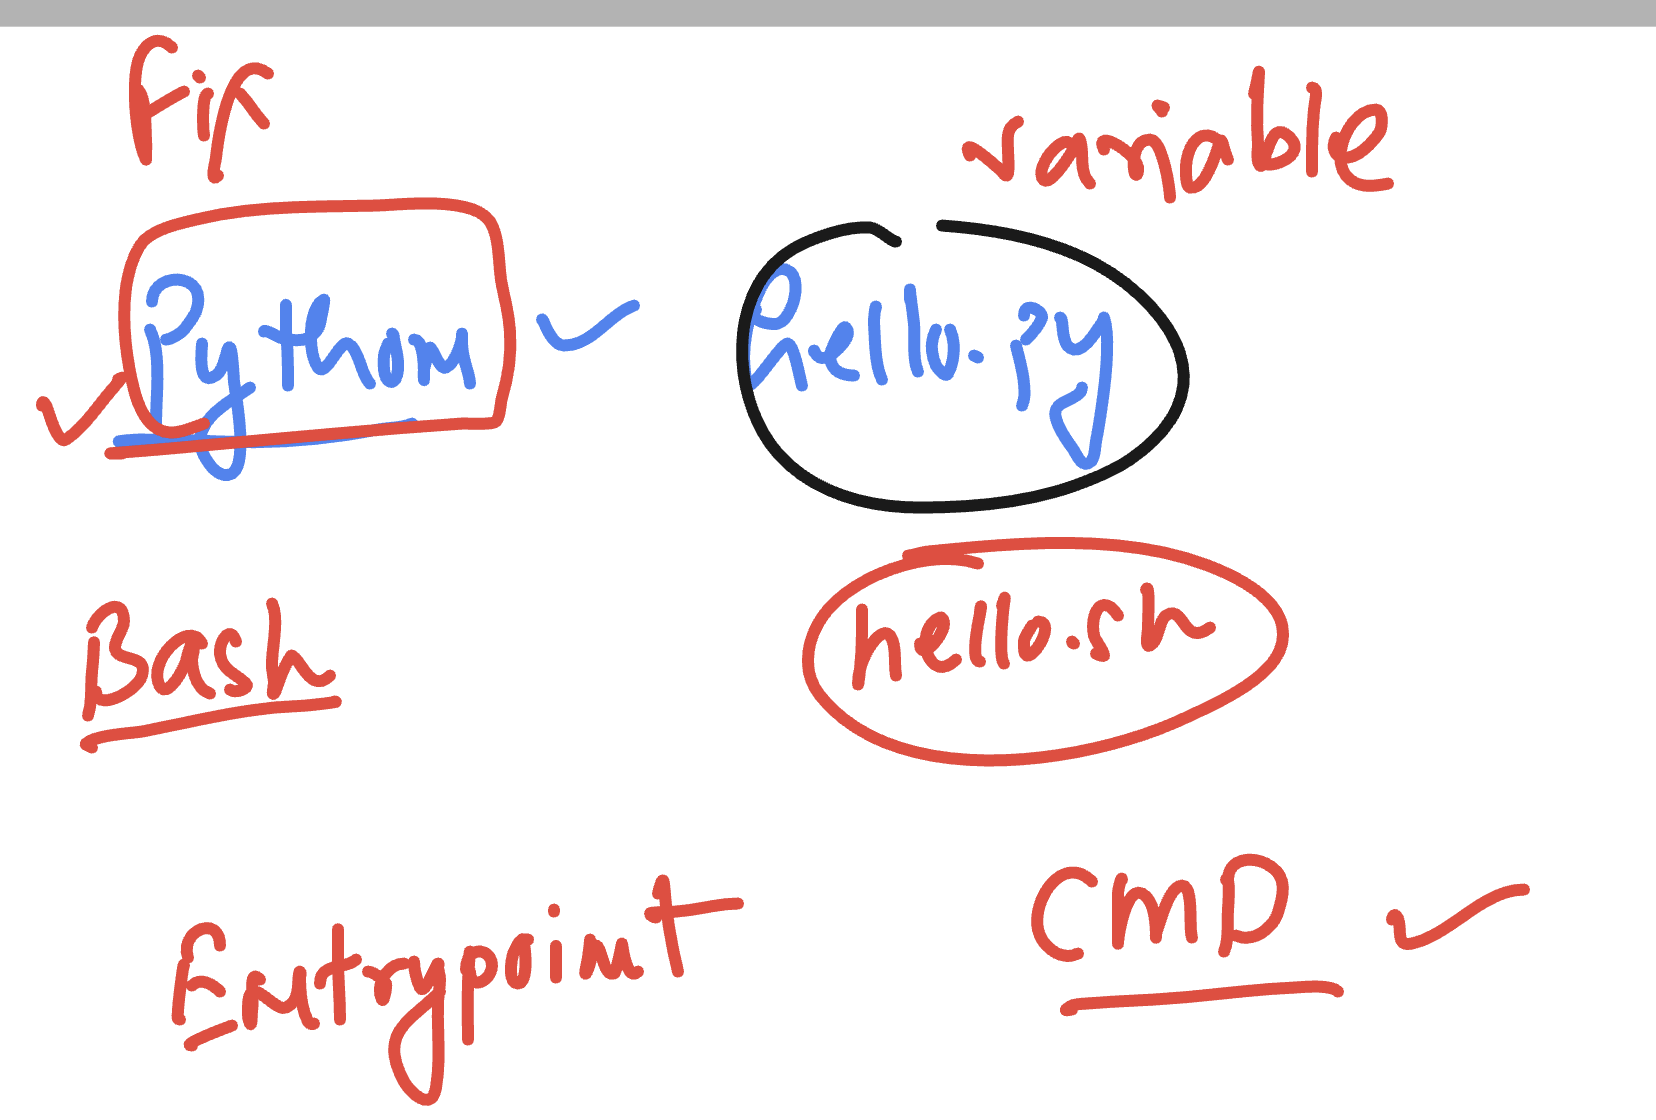 Fix variable
Python hello.py
Bash hello.sh
Entrypoint CMD